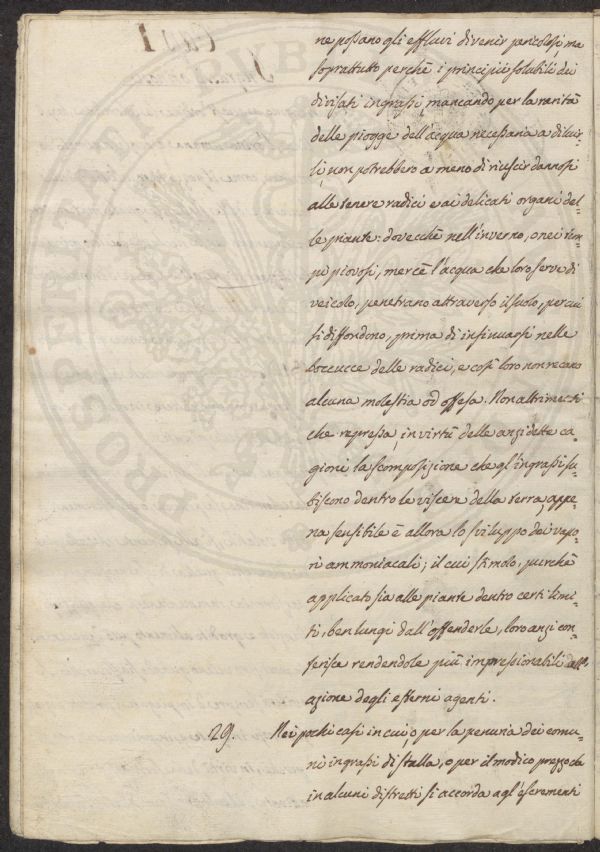 ne possano gli effluvi divenir pericolosi, ma
soprattutto perchè i principii solubili dei
divisati ingrassi, mancando per la rarità
delle piogge dell'acqua necessaria a diluir
li, non potrebbero a meno di riuscir dannosi
alle tenere radici e ai delicati organi del=
le piante: dovecchè nell'inverno, o nei tem=
pi piovosi, mercè l'acqua che loro serve di
veicolo, penetrano attraverso il suolo, per cui
si diffondono, prima di insinuarsi nelle
boccucce delle radici, e così loro non recano
alcuna molestia od offesa. Non altrimenti
che repressa, in virtù delle anzidette ca=
gioni la scomposizione che gl'ingrassi su=
biscono dentro le viscere della terra, appe=
na sensibile è allora lo sviluppo dei vapo=
ri ammoniacali; il cui stimolo, purchè
applicato sia alle piante dentro certi limi=
ti, ben lungi dall'offenderle, loro anzi con=
ferisce rendendole più impressionabili all'
azione degli esterni agenti.
29. Nei pochi casi in cui, o per la penuria dei comu=
ni ingrassi di stalla, o per il modico prezzo che
in alcuni distretti si accorda agl'escrementi